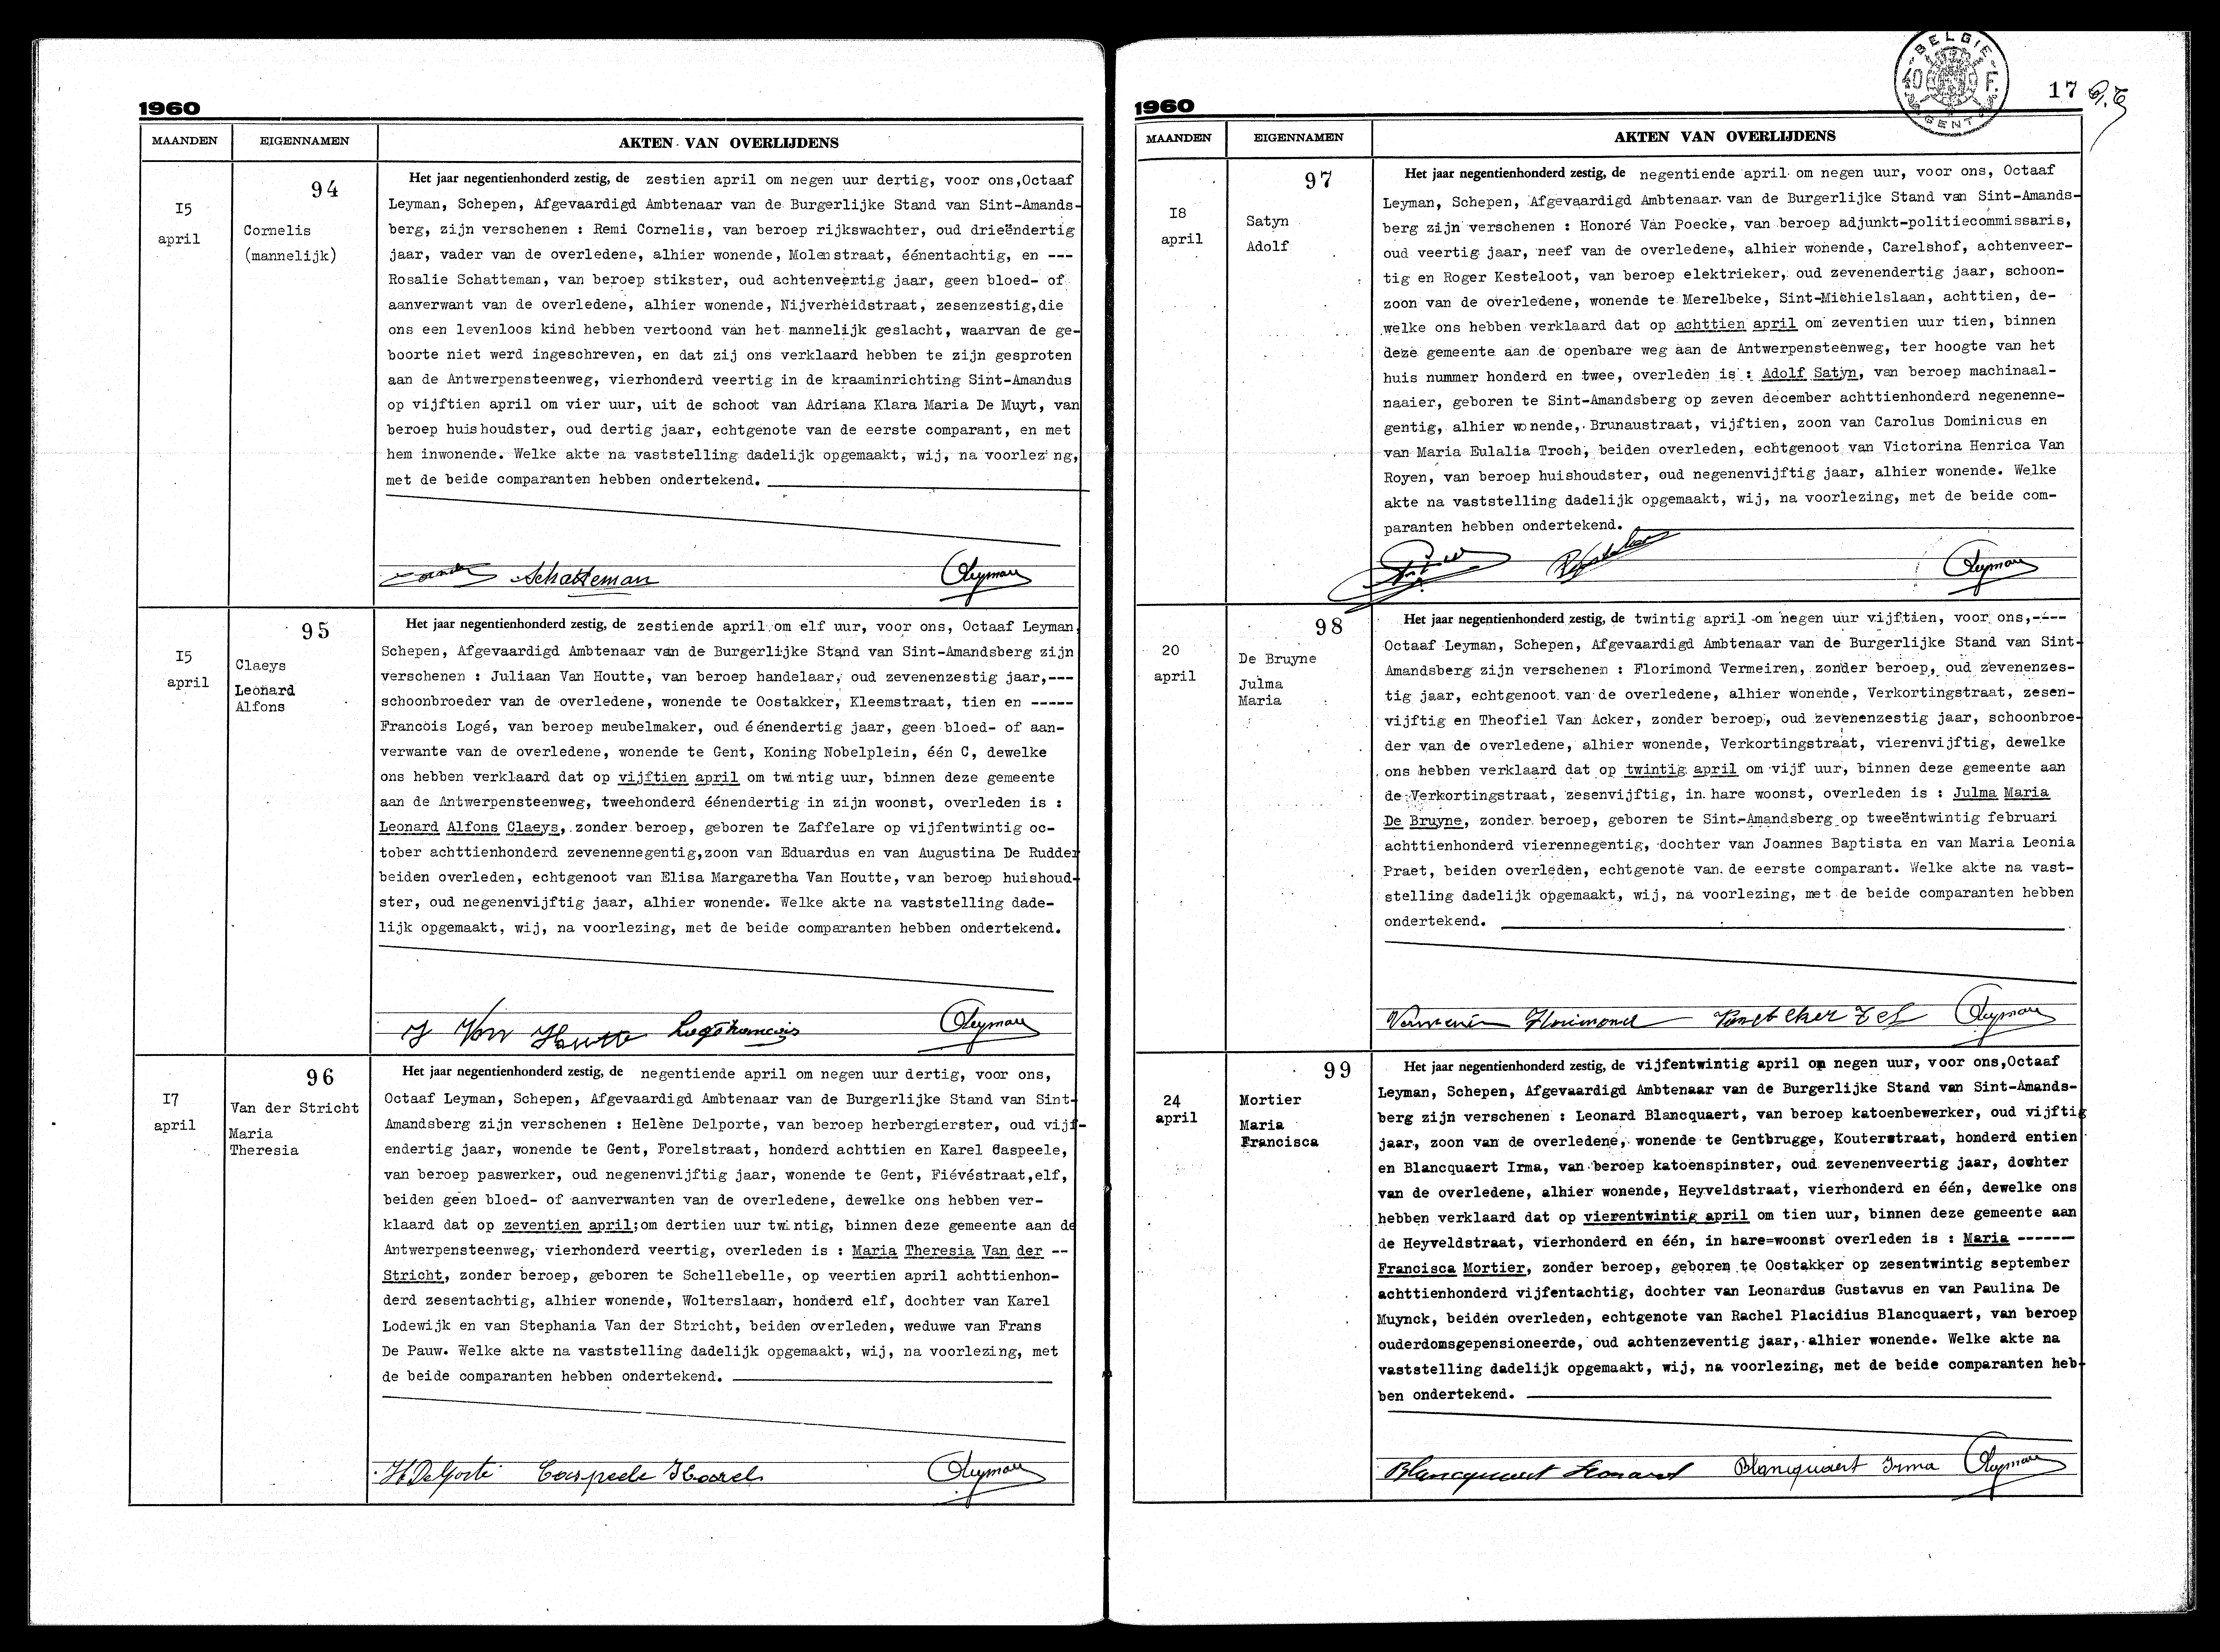 1960
MAANDEN EIGENNAMEN AKTEN VAN OVERLIJDENS
94
I5
april
Cornelis
(mannelijk)
Het jaar negentienhonderd zestig, de zestien april om negen uur dertig, voor ons,Octaaf
Leyman, Schepen, Afgevaardigd Ambtenaar van de Burgerlijke Stand van Sint-Amands-
berg, zijn verschenen : Remi Cornelis, van beroep rijkswachter, oud drieëndertig
jaar, vader van de overledene, alhier wonende, Molenstraat, éénentachtig, en ---
Rosalie Schatteman, van beroep stikster, oud achtenveertig jaar, geen bloed- of
aanverwant van de overledene, alhier wonende, Nijverheidstraat, zesenzestig,die
ons een levenloos kind hebben vertoond van het mannelijk geslacht, waarvan de ge-
boorte niet werd ingeschreven, en dat zij ons verklaard hebben te zijn gesproten
aan de Antwerpensteenweg, vierhonderd veertig in de kraaminrichting Sint-Amandus
op vijftien april om vier uur, uit de schoot van Adriana Klara Maria De Muyt, van
beroep huishoudster, oud dertig jaar, echtgenote van de eerste comparant, en met
hem inwonende. Welke akte na vaststelling dadelijk opgemaakt, wij, na voorlezing,
met de beide comparanten hebben ondertekend.
Schatteman OLeyman
95
I5
april
Claeys
Leonard
Alfons
Het jaar negentienhonderd zestig, de zestiende april om elf uur, voor ons, Octaaf Leyman,
Schepen, Afgevaardigd Ambtenaar van de Burgerlijke Stand van Sint-Amandsberg zijn
verschenen : Juliaan Van Houtte, van beroep handelaar, oud zevenenzestig jaar,---
schoonbroeder van de overledene, wonende te Oostakker, Kleemstraat, tien en -----
Francois Logé, van beroep meubelmaker, oud éénendertig jaar, geen bloed- of aan-
verwante van de overledene, wonende te Gent, Koning Nobelplein, één C, dewelke
ons hebben verklaard dat op vijftien april om twintig uur, binnen deze gemeente
aan de Antwerpensteenweg, tweehonderd éénendertig in zijn woonst, overleden is :
Leonard Alfons Claeys, zonder beroep, geboren te Zaffelare op vijfentwintig oc-
tober achttienhonderd zevenennegentig,zoon van Eduardus en van Augustina De Rudder
beiden overleden, echtgenoot van Elisa Margaretha Van Houtte, van beroep huishoud-
ster, oud negenenvijftig jaar, alhier wonende. Welke akte na vaststelling dade-
lijk opgemaakt, wij, na voorlezing, met de beide comparanten hebben ondertekend.
J Van Houtte Logé Francois OLeyman
96
I7
april
Van der Stricht
Maria
Theresia
Het jaar negentienhonderd zestig, de negentiende april om negen uur dertig, voor ons,
Octaaf Leyman, Schepen, Afgevaardigd Ambtenaar van de Burgerlijke Stand van Sint-
Amandsberg zijn verschenen : Helène Delporte, van beroep herbergierster, oud vijf-
endertig jaar, wonende te Gent, Forelstraat, honderd achttien en Karel Caspeele,
van beroep paswerker, oud negenenvijftig jaar, wonende te Gent, Fiévéstraat,elf,
beiden geen bloed- of aanverwanten van de overledene, dewelke ons hebben ver-
klaard dat op zeventien april;om dertien uur twintig, binnen deze gemeente aan de
Antwerpensteenweg, vierhonderd veertig, overleden is : Maria Theresia Van der --
Stricht, zonder beroep, geboren te Schellebelle, op veertien april achttienhon-
derd zesentachtig, alhier wonende, Wolterslaan, honderd elf, dochter van Karel
Lodewijk en van Stephania Van der Stricht, beiden overleden, weduwe van Frans
De Pauw. Welke akte na vaststelling dadelijk opgemaakt, wij, na voorlezing, met
de beide comparanten hebben ondertekend.
H Delporte Caspeele Karel OLeyman
BELGIE
40 F.
GENT
17
1960
MAANDEN EIGENNAMEN AKTEN VAN OVERLIJDENS
97
I8
april
Satyn
Adolf
Het jaar negentienhonderd zestig, de negentiende april om negen uur, voor ons, Octaaf
Leyman, Schepen, Afgevaardigd Ambtenaar van de Burgerlijke Stand van Sint-Amands-
berg zijn verschenen : Honoré Van Poecke, van beroep adjunkt-politiecommissaris,
oud veertig jaar, neef van de overledene, alhier wonende, Carelshof, achtenveer-
tig en Roger Kesteloot, van beroep elektrieker, oud zevenendertig jaar, schoon-
zoon van de overledene, wonende te Merelbeke, Sint-Michielslaan, achttien, de-
welke ons hebben verklaard dat op achttien april om zeventien uur tien, binnen
deze gemeente aan de openbare weg aan de Antwerpensteenweg, ter hoogte van het
huis nummer honderd en twee, overleden is : Adolf Satyn, van beroep machinaal-
naaier, geboren te Sint-Amandsberg op zeven december achttienhonderd negenenne-
gentig, alhier wonende, Brunaustraat, vijftien, zoon van Carolus Dominicus en
van Maria Eulalia Troch, beiden overleden, echtgenoot van Victorina Henrica Van
Royen, van beroep huishoudster, oud negenenvijftig jaar, alhier wonende. Welke
akte na vaststelling dadelijk opgemaakt, wij, na voorlezing, met de beide com-
paranten hebben ondertekend.
OLeyman
98
20
april
De Bruyne
Julma
Maria
Het jaar negentienhonderd zestig, de twintig april om negen uur vijftien, voor ons,----
Octaaf Leyman, Schepen, Afgevaardigd Ambtenaar van de Burgerlijke Stand van Sint-
Amandsberg zijn verschenen : Florimond Vermeiren, zonder beroep, oud zevenenzes-
tig jaar, echtgenoot van de overledene, alhier wonende, Verkortingstraat, zesen-
vijftig en Theofiel Van Acker, zonder beroep, oud zevenenzestig jaar, schoonbroe-
der van de overledene, alhier wonende, Verkortingstraat, vierenvijftig, dewelke
ons hebben verklaard dat op twintig april om vijf uur, binnen deze gemeente aan
de Verkortingstraat, zesenvijftig, in hare woonst, overleden is : Julma Maria
De Bruyne, zonder beroep, geboren te Sint-Amandsberg op tweeëntwintig februari
achttienhonderd vierennegentig, dochter van Joannes Baptista en van Maria Leonia
Praet, beiden overleden, echtgenote van de eerste comparant. Welke akte na vast-
stelling dadelijk opgemaakt, wij, na voorlezing, met de beide comparanten hebben
ondertekend.
Florimond OLeyman
99
24
april
Mortier
Maria
Francisca
Het jaar negentienhonderd zestig, de vijfentwintig april om negen uur, voor ons,Octaaf
Leyman, Schepen, Afgevaardigd Ambtenaar van de Burgerlijke Stand van Sint-Amands-
berg zijn verschenen : Leonard Blancquaert, van beroep katoenbewerker, oud vijftig
jaar, zoon van de overledene, wonende te Gentbrugge, Kouterstraat, honderd entien
en Blancquaert Irma, van beroep katoenspinster, oud zevenenveertig jaar, dochter
van de overledene, alhier wonende, Heyveldstraat, vierhonderd en één, dewelke ons
hebben verklaard dat op vierentwintig april om tien uur, binnen deze gemeente aan
de Heyveldstraat, vierhonderd en één, in hare=woonst overleden is : Maria -------
Francisca Mortier, zonder beroep, geboren te Oostakker op zesentwintig september
achttienhonderd vijfentachtig, dochter van Leonardus Gustavus en van Paulina De
Muynck, beiden overleden, echtgenote van Rachel Placidius Blancquaert, van beroep
ouderdomsgepensioneerde, oud achtenzeventig jaar, alhier wonende. Welke akte na
vaststelling dadelijk opgemaakt, wij, na voorlezing, met de beide comparanten heb-
ben ondertekend.
Blancquaert Leonard Blancquaert Irma OLeyman